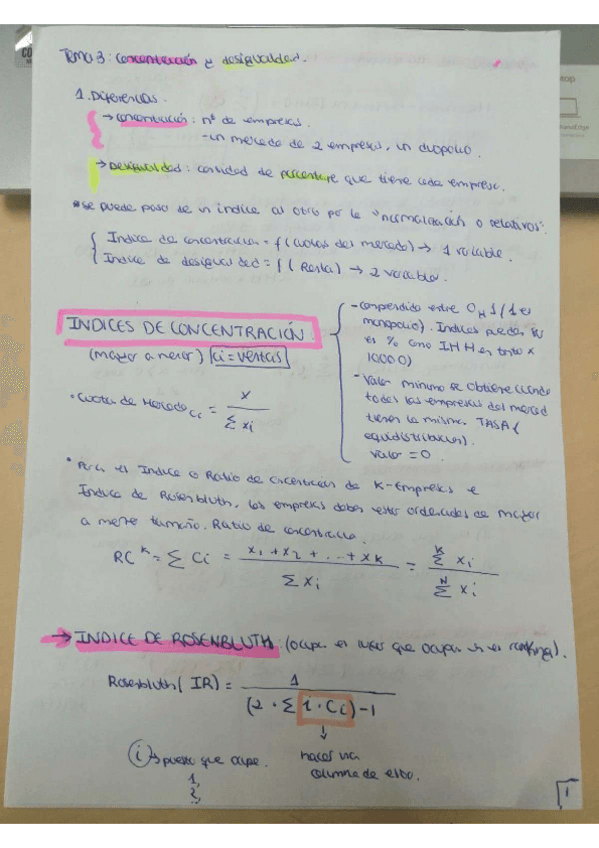 Tema 3: concentración y desigualdad.
1. Diferencias.
→ concentración: nº de empresas.
- un mercado de 2 empresas, un duopolio.
→ Desigualdad: cantidad de porcentaje que tiene cada empresa.
* se puede pasar de un índice al otro por la "normalización o relativos".
Indice de concentración = f (cuotas del mercado) → 1 variable.
Indice de desigualdad = f ( Renta) → 2 variable.
INDICES DE CONCENTRACIÓN
(mayor a menor) ci = ventas
- comprendido entre 0 y 1 (1 es
monopolio). Indices pueden ir
en % como IHH en tanto x
10000)
- Valor mínimo se obtiene cuando
todas las empresas del mercad
tienen la misma TASA (
equidistribución).
Valor = 0.
• Cuota de Mercado Ci = X / Σ xi
• Para el Indice o Ratio de concentración de K-Empresas e
Indice de Rosenbluth, las empresas deben estar ordenadas de mayor
a menor tamaño. Ratio de concentración.
RC^K = Σ Ci = x1 + x2 + ... + xK / Σ xi = Σ^K xi / Σ^N xi
→ INDICE DE ROSENBLUTH: (ocupa el lugar que ocupan en el ranking).
Rosenbluth ( IR) = 1 / (2 · Σ i · Ci) - 1
i → puesto que ocupe.
1,
2,
hacer una
columna de esto.
1